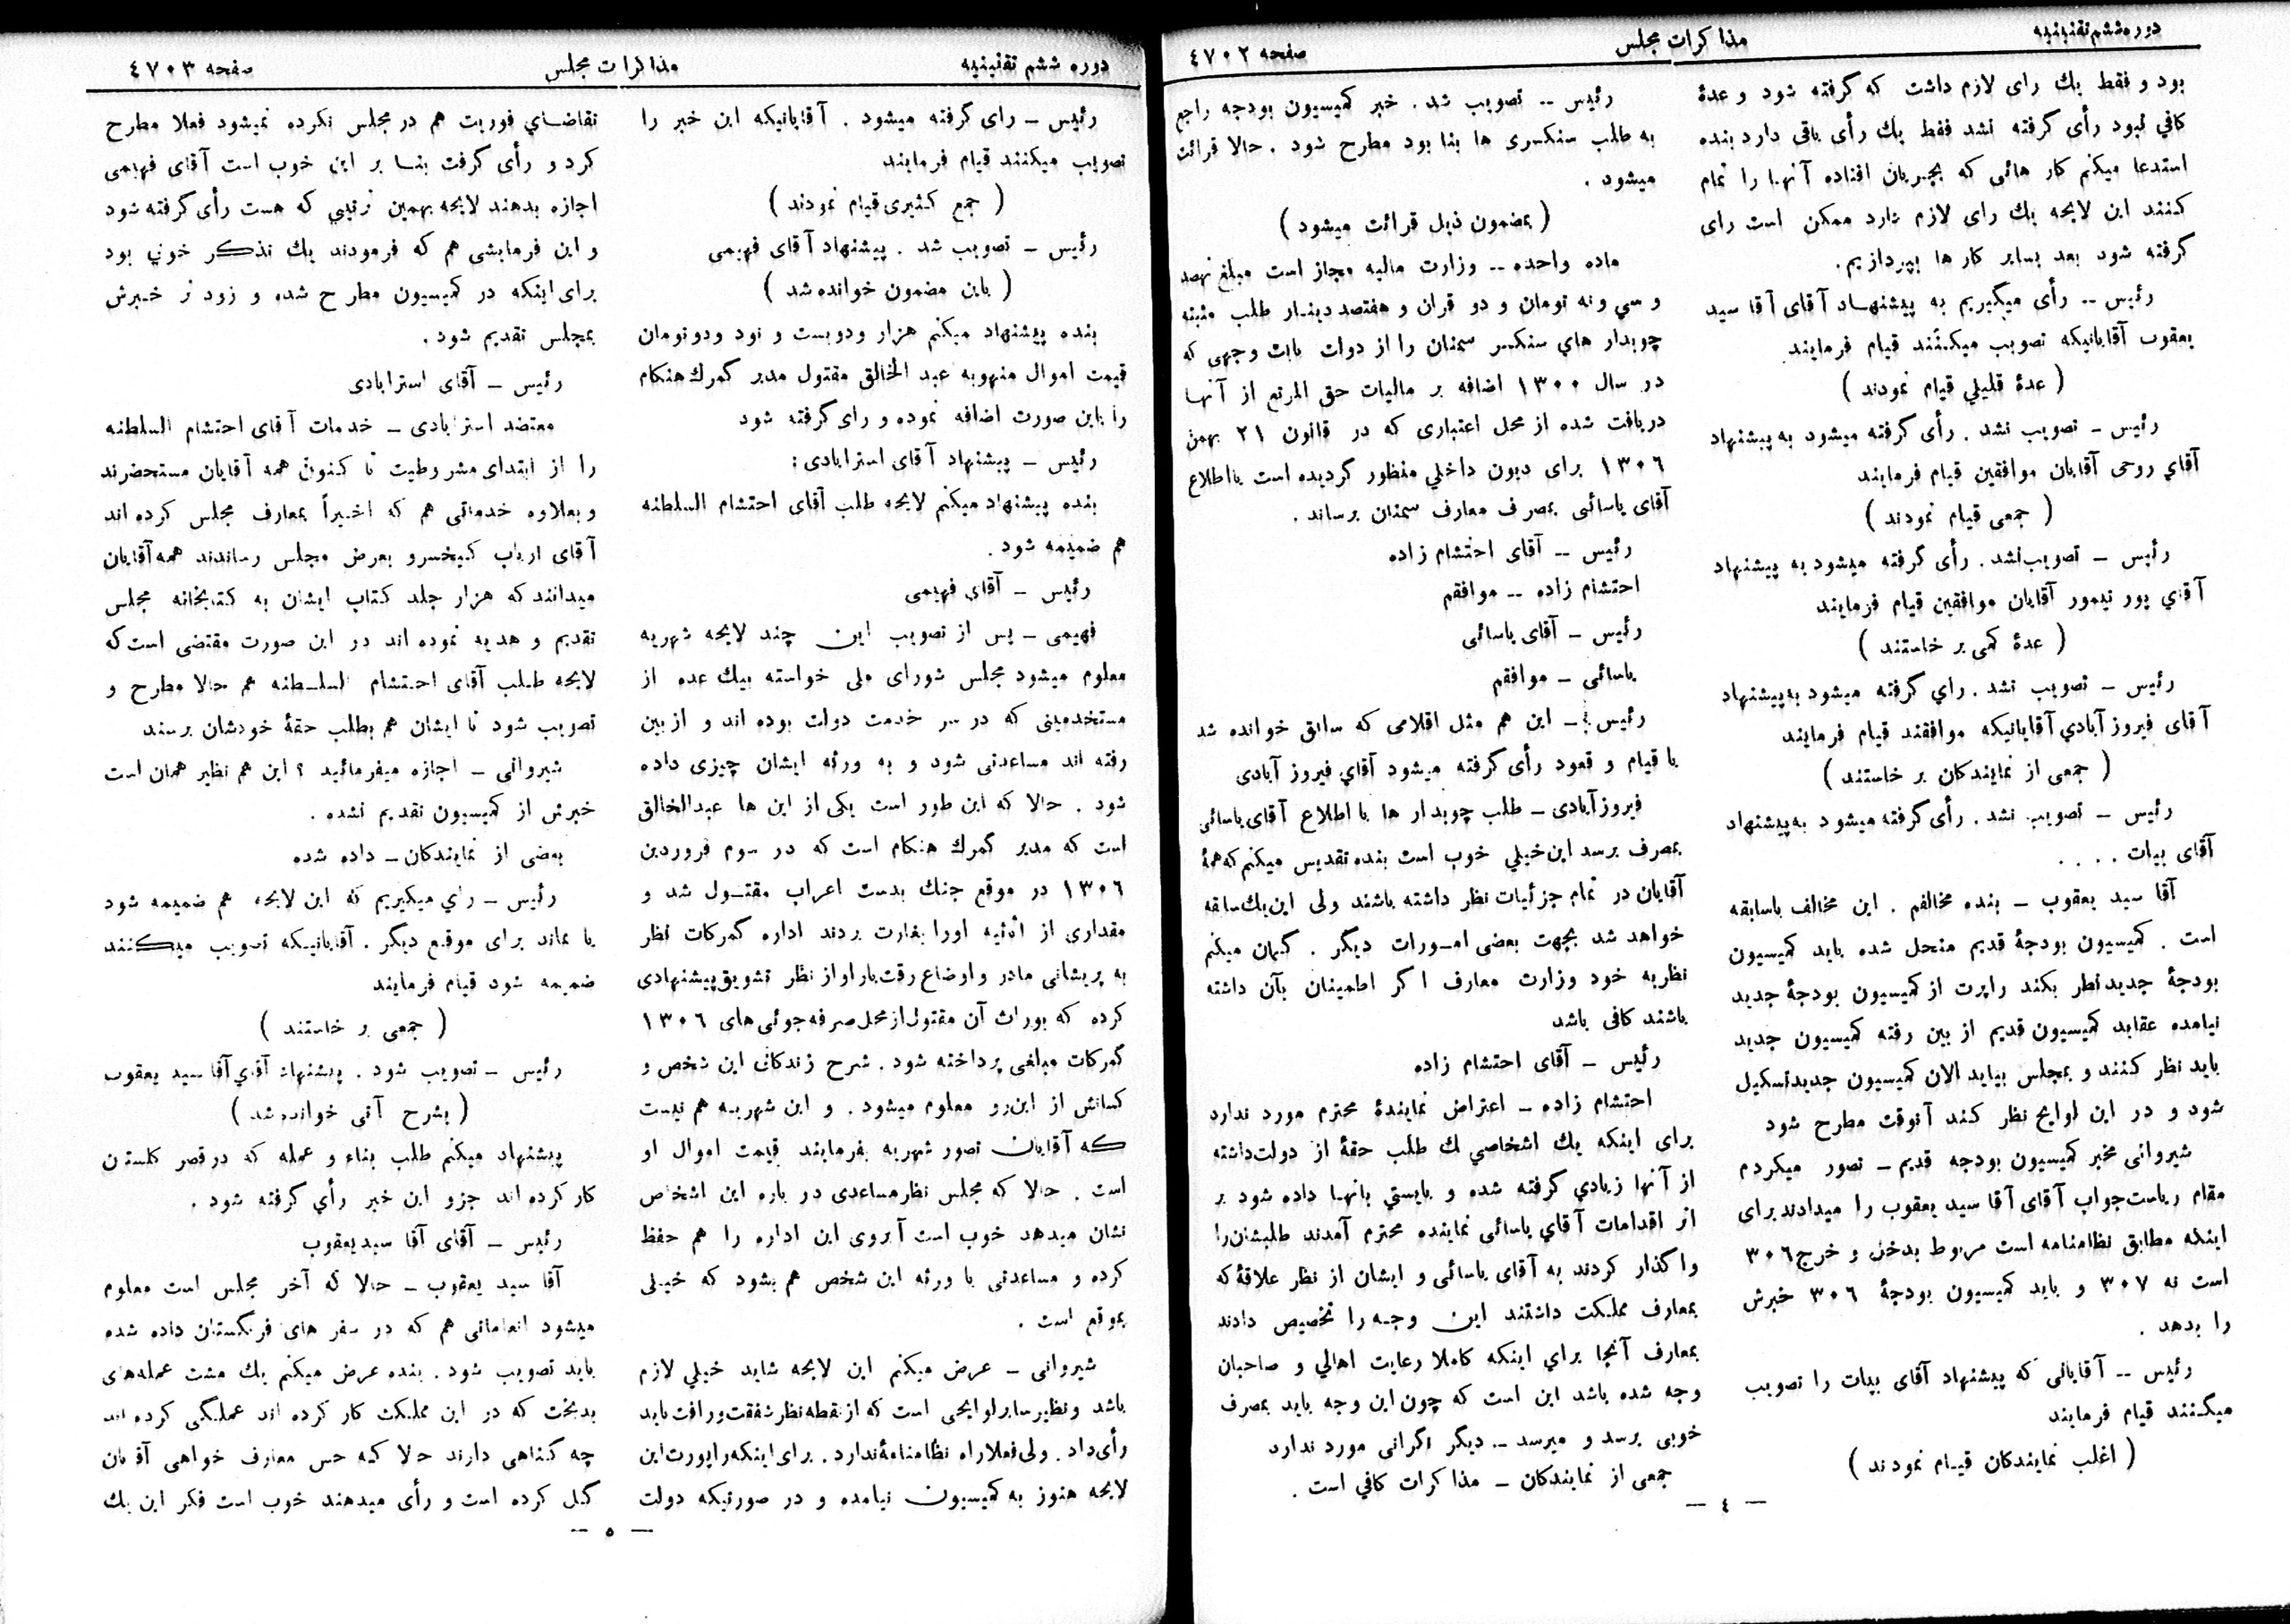 دوره ششم تقنینیه
مذاکرات مجلس
صفحه ٤٧٠٢
بود و فقط یك رای لازم داشت که گرفته شود و عدهٔ
کافی نبود رأی گرفته نشد فقط یك رأی باقی دارد بنده
استدعا میکنم کار هائی که بجریان افتاده آنها را تمام
کنند این لایحه یك رای لازم دارد ممکن است رای
گرفته شود بعد بسایر کار ها بپردازیم.
رئیس -- رأی میگیریم به پیشنهاد آقای آقا سید
یعقوب آقایانیکه تصویب میکنند قیام فرمایند
( عدهٔ قلیلی قیام نمودند )
رئیس - تصویب نشد . رأی گرفته میشود به پیشنهاد
آقای روحی آقایان موافقین قیام فرمایند
( جمعی قیام نمودند )
رئیس - تصویب نشد . رأی گرفته میشود به پیشنهاد
آقای پور تیمور آقایان موافقین قیام فرمایند
( عدهٔ کمی بر خاستند )
رئیس - تصویب نشد . رای گرفته میشود به پیشنهاد
آقای فیروز آبادی آقایانیکه موافقند قیام فرمایند
( جمعی از نمایندکان بر خاستند )
رئیس - تصویب نشد . رأی گرفته میشود به پیشنهاد
آقای بیات . . . .
آقا سید یعقوب - بنده مخالفم . این مخالف باسابقه
است . کمیسیون بودجهٔ قدیم منحل شده باید کمیسیون
بودجهٔ جدید نظر بکند راپرت از کمیسیون بودجهٔ جدید
نیامده عقاید کمیسیون قدیم از بین رفته کمیسیون جدید
باید نظر کنند و بمجلس بیاید الان کمیسیون جدید تشکیل
شود و در این لوایح نظر کند آنوقت مطرح شود
شیروانی مخبر کمیسیون بودجه قدیم - تصور میکردم
مقام ریاست جواب آقای آقا سید یعقوب را میدادند برای
اینکه مطابق نظامنامه است مربوط بدخل و خرج ٣٠٦
است نه ٣٠٧ و باید کمیسیون بودجهٔ ٣٠٦ خبرش
را بدهد .
رئیس -- آقایانی که پیشنهاد آقای بیات را تصویب
میکنند قیام فرمایند
( اغلب نمایندکان قیام نمودند )
رئیس -- تصویب شد . خبر کمیسیون بودجه راجع
به طلب سنکسری ها بنا بود مطرح شود . حالا قرائت
میشود .
( بمضمون ذیل قرائت میشود )
ماده واحده -- وزارت مالیه مجاز است مبلغ نهصد
و سی و نه تومان و دو قران و هفتصد دینار طلب مثبته
چوبدار های سنکسر سمنان را از دولت بابت وجهی که
در سال ١٣٠٠ اضافه بر مالیات حق المرتع از آنها
دریافت شده از محل اعتباری که در قانون ٢١ بهمن
١٣٠٦ برای دیون داخلی منظور کردیده است با اطلاع
آقای یاسائی بمصرف معارف سمنان برساند .
رئیس -- آقای احتشام زاده
احتشام زاده -- موافقم
رئیس - آقای یاسائی
یاسائی - موافقم
رئیس - این هم مثل اقلامی که سابق خوانده شد
با قیام و قعود رأی گرفته میشود آقای فیروز آبادی
فیروز آبادی - طلب چوبدار ها با اطلاع آقای یاسائی
بمصرف برسد این خیلی خوب است بنده تقدیس میکنم که همهٔ
آقایان در تمام جزئیات نظر داشته باشند ولی این یك سابقه
خواهد شد بجهت بعضی امورات دیگر . کمان میکنم
نظریه خود وزارت معارف اکر اطمینان بآن داشته
باشند کافی باشد
رئیس - آقای احتشام زاده
احتشام زاده - اعتراض نمایندهٔ محترم مورد ندارد
برای اینکه یك اشخاصی ك طلب حقهٔ از دولت داشته
از آنها زیادی گرفته شده و بایستی بانها داده شود بر
اثر اقدامات آقای یاسائی نماینده محترم آمدند طلبشان را
واکذار کردند به آقای یاسائی و ایشان از نظر علاقهٔ که
بمعارف مملکت داشتند این وجه را تخصیص دادند
بمعارف آنجا برای اینکه کاملا رعایت اهالی و صاحبان
وجه شده باشد این است که چون این وجه باید بمصرف
خوبی برسد و میرسد -- دیگر نگرانی مورد ندارد
جمعی از نمایندکان - مذاکرات کافی است .
— ٤ —
دوره ششم تقنینیه
مذاکرات مجلس
صفحه ٤٧٠٣
رئیس - رای گرفته میشود . آقایانیکه این خبر را
تصویب میکنند قیام فرمایند
( جمع کثیری قیام نمودند )
رئیس - تصویب شد . پیشنهاد آقای فهیمی
( باین مضمون خوانده شد )
بنده پیشنهاد میکنم هزار و دویست و نود و دو تومان
قیمت اموال منهوبه عبد الخالق مقتول مدیر کمرك هنکام
را باین صورت اضافه نموده و رای گرفته شود
رئیس - پیشنهاد آقای استرابادی :
بنده پیشنهاد میکنم لایحه طلب آقای احتشام السلطنه
هم ضمیمه شود .
رئیس - آقای فهیمی
فهیمی - پس از تصویب این چند لایحه شهریه
معلوم میشود مجلس شورای ملی خواسته بیك عده از
مستخدمینی که در سر خدمت دولت بوده اند و از بین
رفته اند مساعدتی شود و به ورثه ایشان چیزی داده
شود . حالا که این طور است یکی از این ها عبدالخالق
است که مدیر گمرك هنکام است که در سوم فروردین
١٣٠٦ در موقع جنك بدست اعراب مقتول شد و
مقداری از اثاثیه اورا بغارت بردند اداره گمرکات نظر
به پریشانی مادر و اوضاع رقت بار او از نظر تشویق پیشنهادی
کرده که بوراث آن مقتول از محل صرفه جوئی های ١٣٠٦
گمرکات مبلغی پرداخته شود . شرح زندکانی این شخص و
کسانش از این رو معلوم میشود . و این شهریه هم نیست
که آقایان تصور شهریه بفرمایند قیمت اموال او
است . حالا که مجلس نظر مساعدی در باره این اشخاص
نشان میدهد خوب است آبروی این اداره را هم حفظ
کرده و مساعدتی با ورثه این شخص هم بشود که خیلی
بموقع است .
شیروانی - عرض میکنم این لایحه شاید خیلی لازم
باشد و نظیر سایر لوایحی است که از نقطه نظر شفقت و رافت باید
رأی داد . ولی فعلا راه نظامنامهٔ ندارد . برای اینکه راپورت این
لایحه هنوز به کمیسیون نیامده و در صورتیکه دولت
تقاضای فوریت هم در مجلس نکرده نمیشود فعلا مطرح
کرد و رأی گرفت بنا بر این خوب است آقای فهیمی
اجازه بدهند لایحه بهمین ترتیبی که هست رأی گرفته شود
و این فرمایشی هم که فرمودند یك تذکر خوبی بود
برای اینکه در کمیسیون مطرح شده و زود تر خبرش
بمجلس تقدیم شود .
رئیس - آقای استرابادی
معتضد استرابادی - خدمات آقای احتشام السلطنه
را از ابتدای مشروطیت تا کنون همه آقایان مستحضرند
و بعلاوه خدماتی هم که اخیراً بمعارف مجلس کرده اند
آقای ارباب کیخسرو بعرض مجلس رساندند همه آقایان
میدانند که هزار جلد کتاب ایشان به کتابخانه مجلس
تقدیم و هدیه نموده اند در این صورت مقتضی است که
لایحه طلب آقای احتشام السلطنه هم حالا مطرح و
تصویب شود تا ایشان هم بطلب حقهٔ خودشان برسند
شیروانی - اجازه میفرمائید ؟ این هم نظیر همان است
خبرش از کمیسیون تقدیم نشده .
بعضی از نمایندکان - داده شده
رئیس - رای میکیریم که این لایحه هم ضمیمه شود
یا بماند برای موقع دیگر . آقایانیکه تصویب میکنند
ضمیمه شود قیام فرمایند
( جمعی بر خاستند )
رئیس - تصویب شود . پیشنهاد آقای آقا سید یعقوب
( بشرح آتی خوانده شد )
پیشنهاد میکنم طلب بناء و عمله که در قصر کلستان
کار کرده اند جزو این خبر رأی گرفته شود .
رئیس - آقای آقا سید یعقوب
آقا سید یعقوب - حالا که آخر مجلس است معلوم
میشود انعاماتی هم که در سفر های فرنگستان داده شده
باید تصویب شود . بنده عرض میکنم یك مشت عمله های
بدبخت که در این مملکت کار کرده اند عملگی کرده اند
چه کناهی دارند حالا که حس معارف خواهی آقایان
کل کرده است و رأی میدهند خوب است فکر این یك
— ٥ —